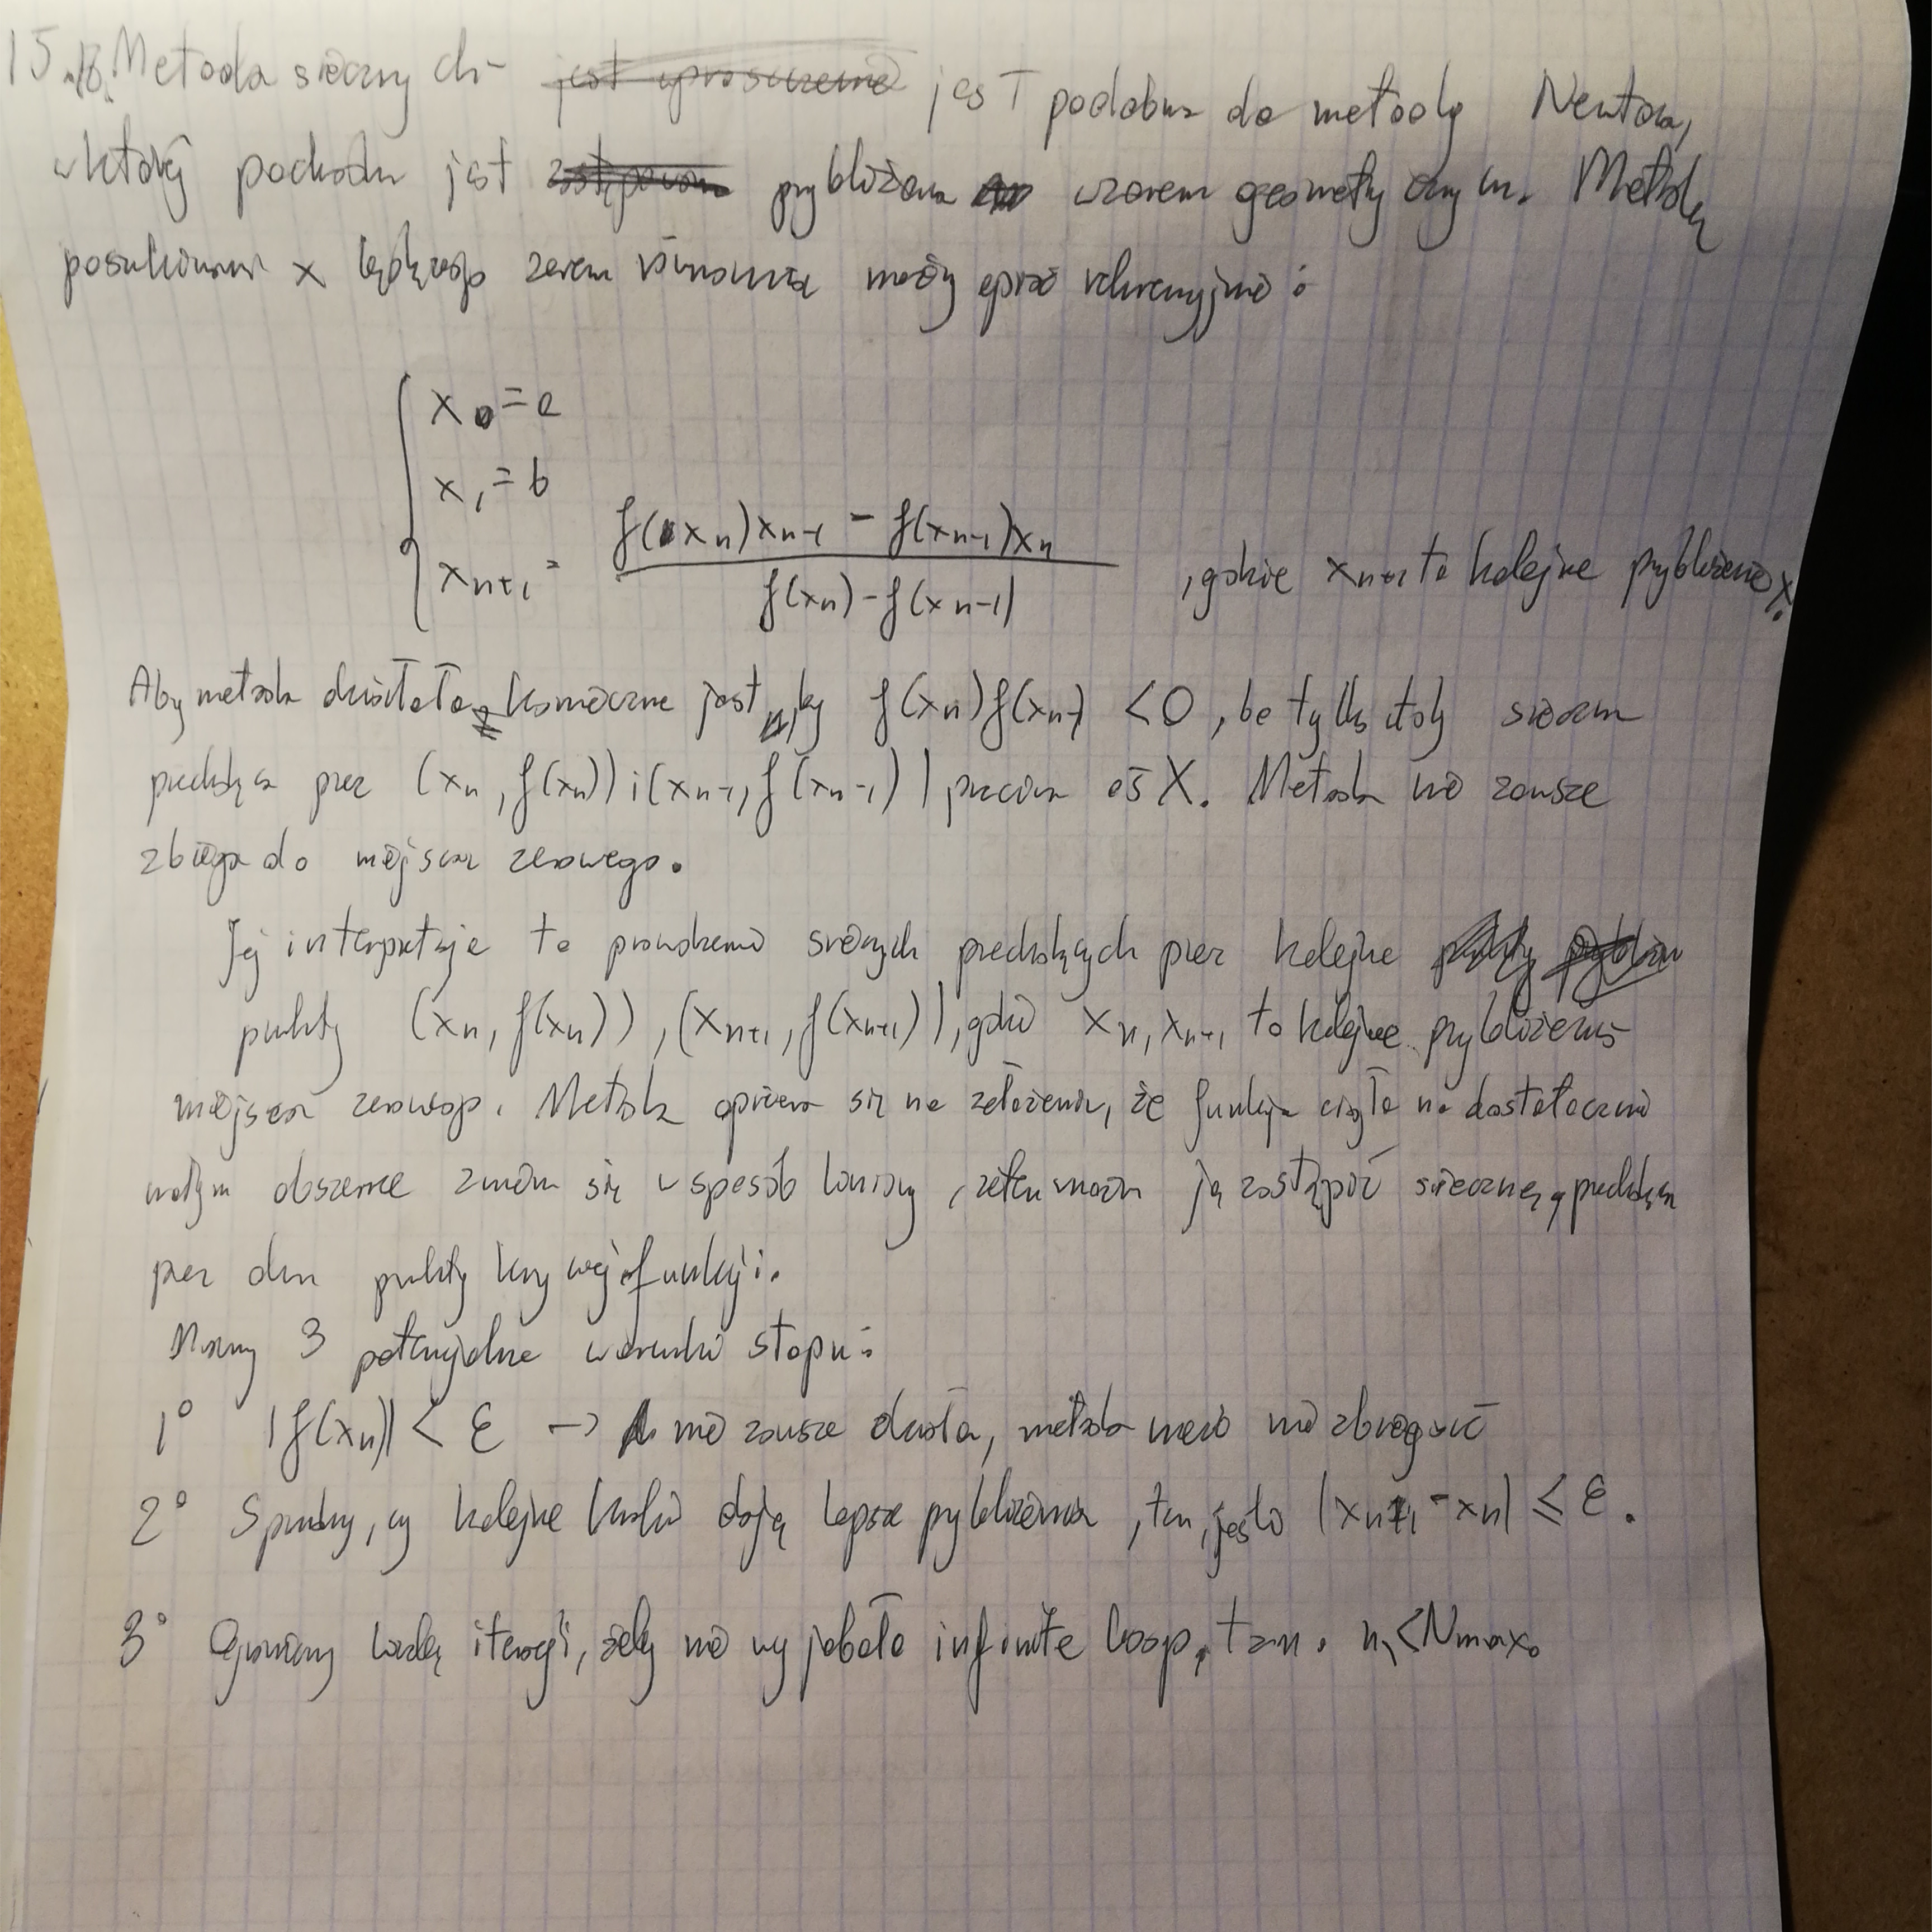 15.B. Metoda siecznych - jest uproszczeniem jest podobna do metody Newtona,
w której pochodna jest zastępowana przybliżona wzorem geometrycznym. Metodę
poszukiwania x będącego zerem równania można opisać rekurencyjnie:
x₀ = a
x₁ = b
xₙ₊₁ = (f(xₙ)xₙ₋₁ - f(xₙ₋₁)xₙ) / (f(xₙ) - f(xₙ₋₁)) , gdzie xₙ₊₁ to kolejne przybliżenie x.
Aby metoda działała, konieczne jest, by f(xₙ)f(xₙ₋₁) < 0, bo tylko wtedy sieczna
przechodząca przez (xₙ, f(xₙ)) i (xₙ₋₁, f(xₙ₋₁)) przecina oś X. Metoda nie zawsze
zbiega do miejsca zerowego.
Jej interpretacje to prowadzenie siecznych przechodzących przez kolejne
punkty (xₙ, f(xₙ)), (xₙ₊₁, f(xₙ₊₁)), gdzie xₙ, xₙ₊₁ to kolejne przybliżenia
miejsca zerowego. Metoda opiera się na założeniu, że funkcja ciągła na dostatecznie
małym obszarze zmienia się w sposób liniowy, zatem można ją zastąpić sieczną, przechodzącą
przez dwa punkty krzywej funkcji.
Mamy 3 potencjalne warunki stopu:
1° |f(xₙ)| < ε → nie zawsze działa, metoda może nie zbiegać
2° Sprawdzamy, czy kolejne kroki dają lepsze przybliżenia, tzn, jeśli |xₙ₊₁ - xₙ| ≤ ε.
3° Ograniczamy liczbę iteracji, żeby nie wyjebało infinite loop, tzn. n < Nmax.